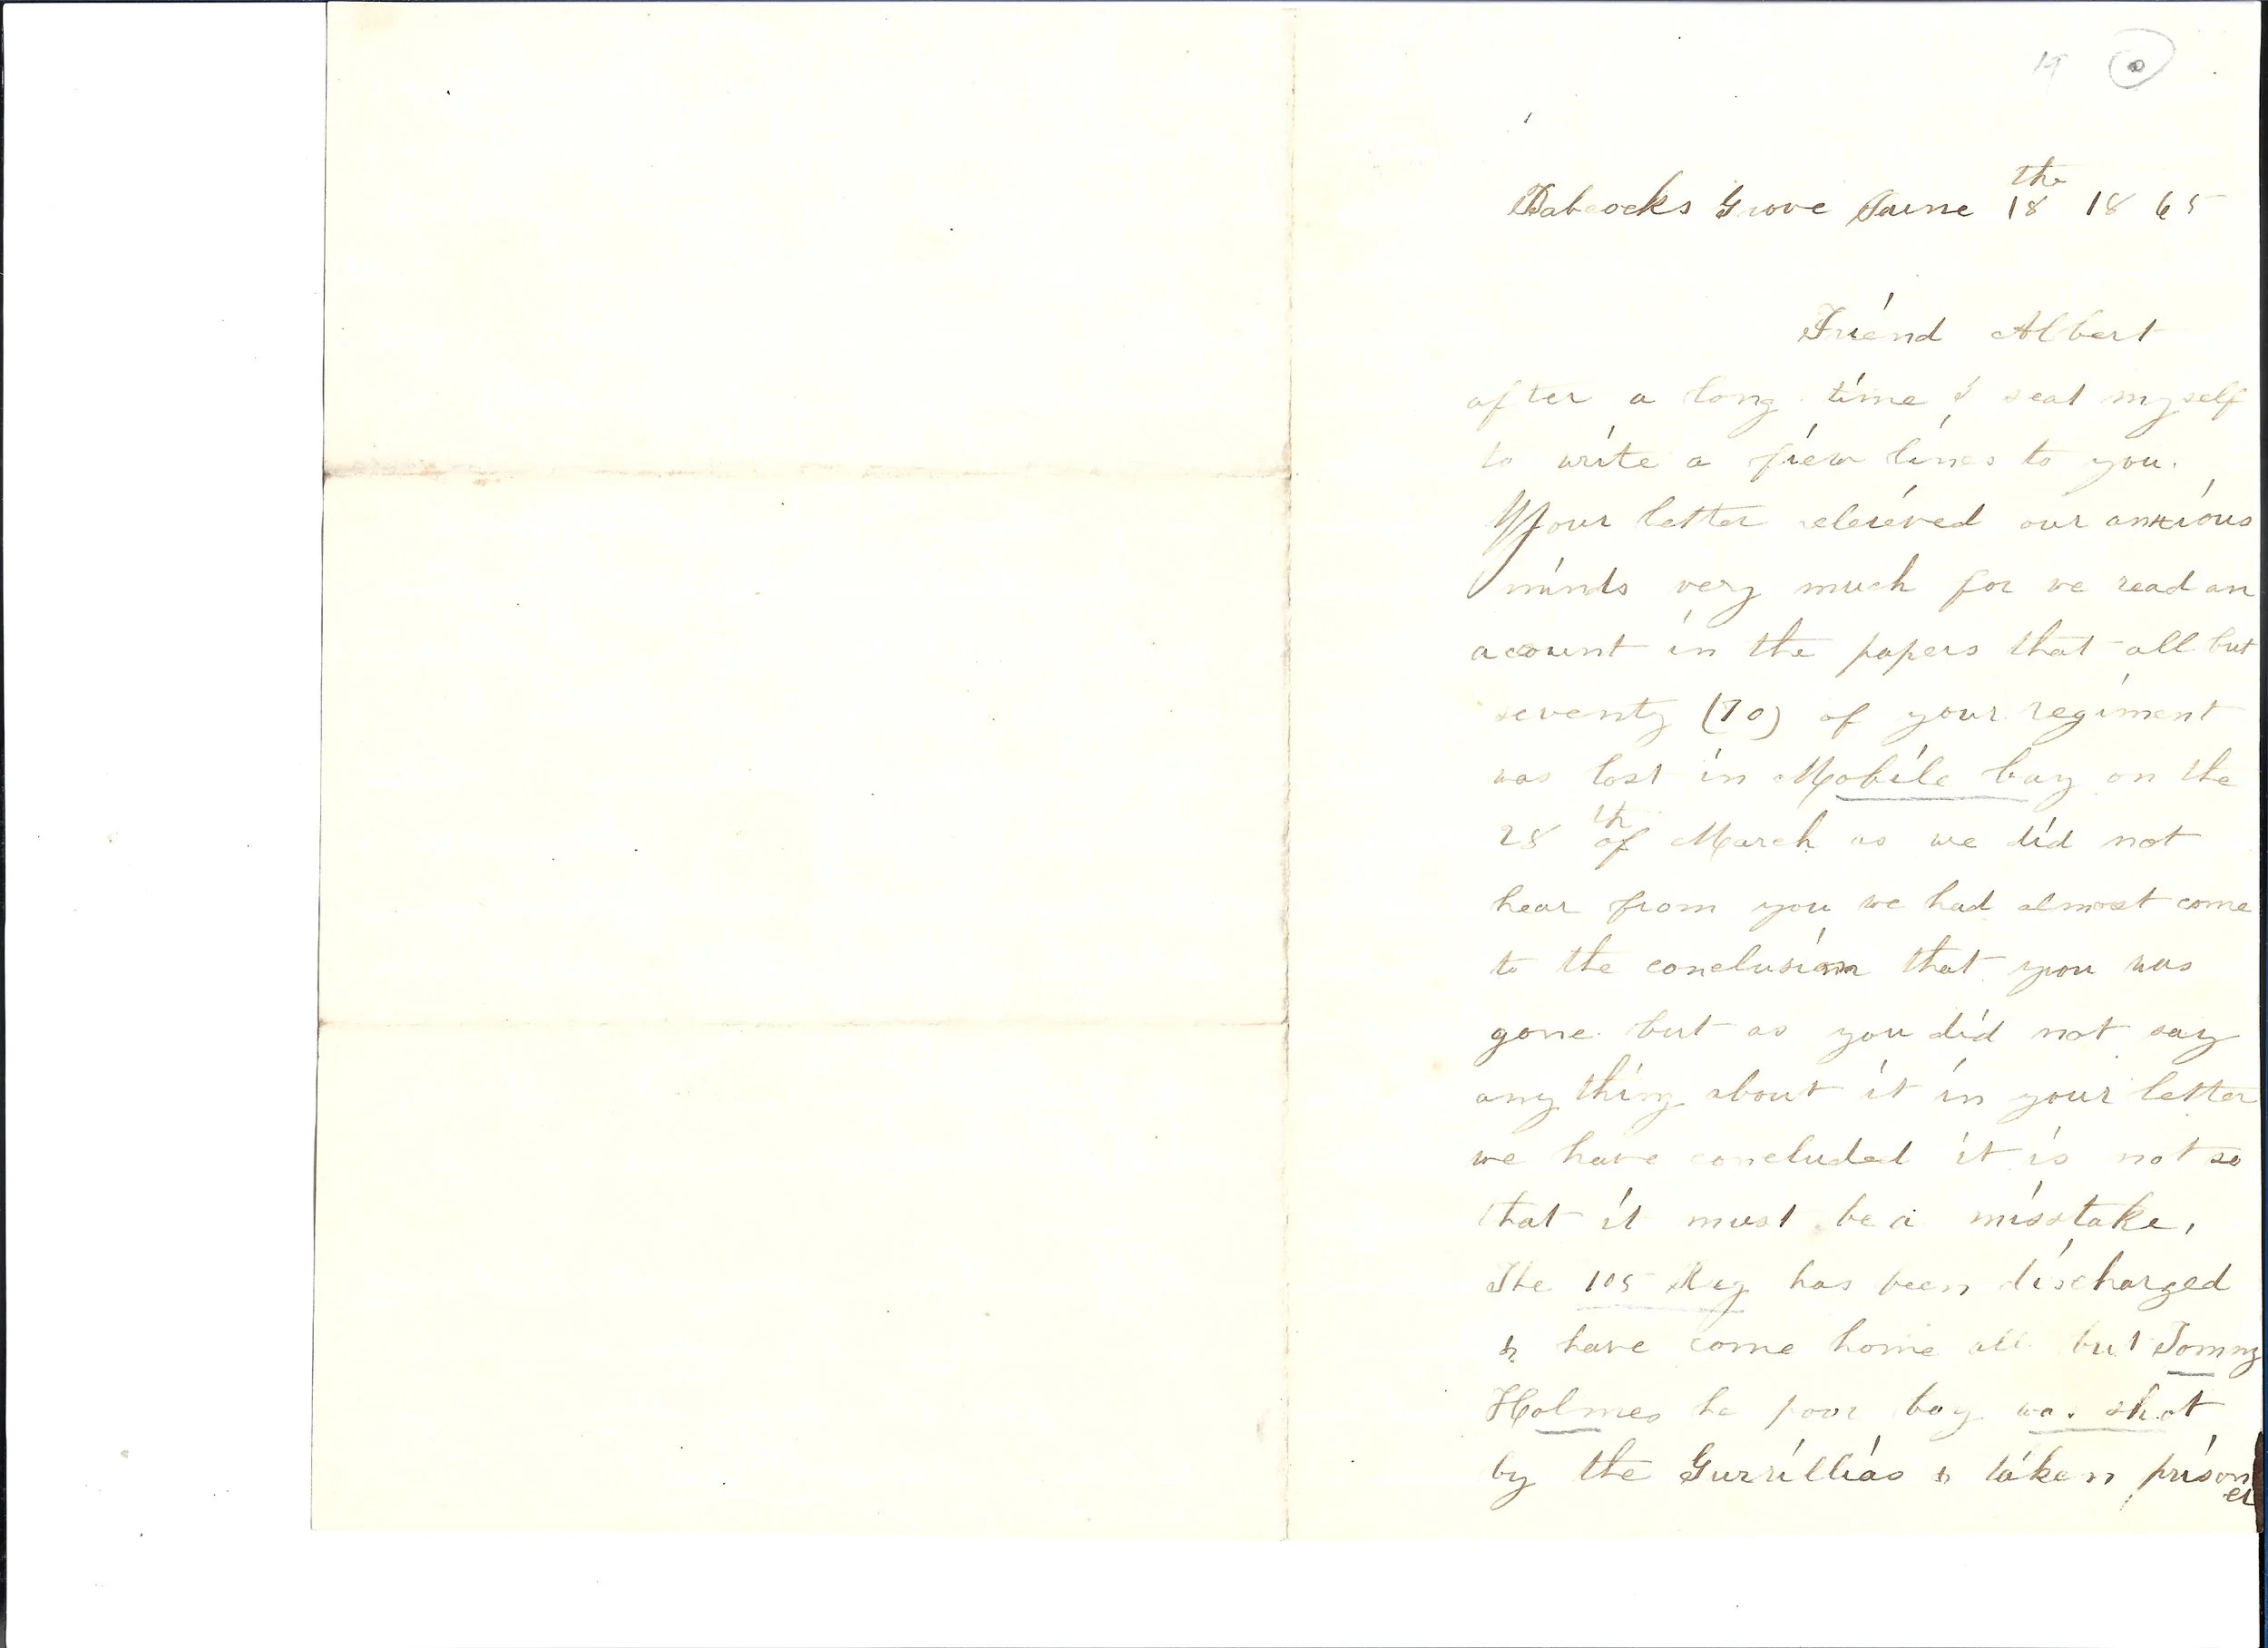 19
the
Babcocks Grove June 18 1865
Friend Albert
after a long time I seat myself
to write a fiew lines to you.
Your letter releieved our anxious
minds very much for we read an
account in the papers that all but
seventy (70) of your regiment
was lost in Mobile bay on the
28th of March as we did not
hear from you we had almost come
to the conclusion that you was
gone but as you did not say
any thing about it in your letter
we have concluded it is not so
that it must be a misstake,
The 105 Reg has been discharged
& have come home all but Tommy
Holmes he poor boy was shot
by the Gurrillias & taken prisoner